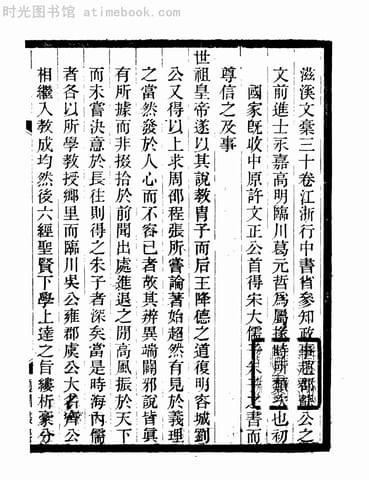 时光图书馆 - atimebook.com
滋溪文稾三十卷江浙行中書省參知政事趙郡蘇公之
文前進士永嘉高明臨川葛元哲爲屬掾時所類次也初
國家旣收中原許文正公首得宋大儒子朱子之書而
尊信之及事
世祖皇帝遂以其說教胄子而后王降德之道復明容城劉
公又得以上求周邵程張所嘗論著始超然有見於義理
之當然發於人心而不容已者故其辨異端闢邪說皆眞
有所據而非掇拾於前聞出處進退之閒高風振於天下
而未嘗決意於長往則得之朱子者深矣當是時海內儒
者各以所學教授鄉里而臨川吳公雍郡虞公大名齊公
相繼入教成均然後六經聖賢下學上達之旨縷析豪分